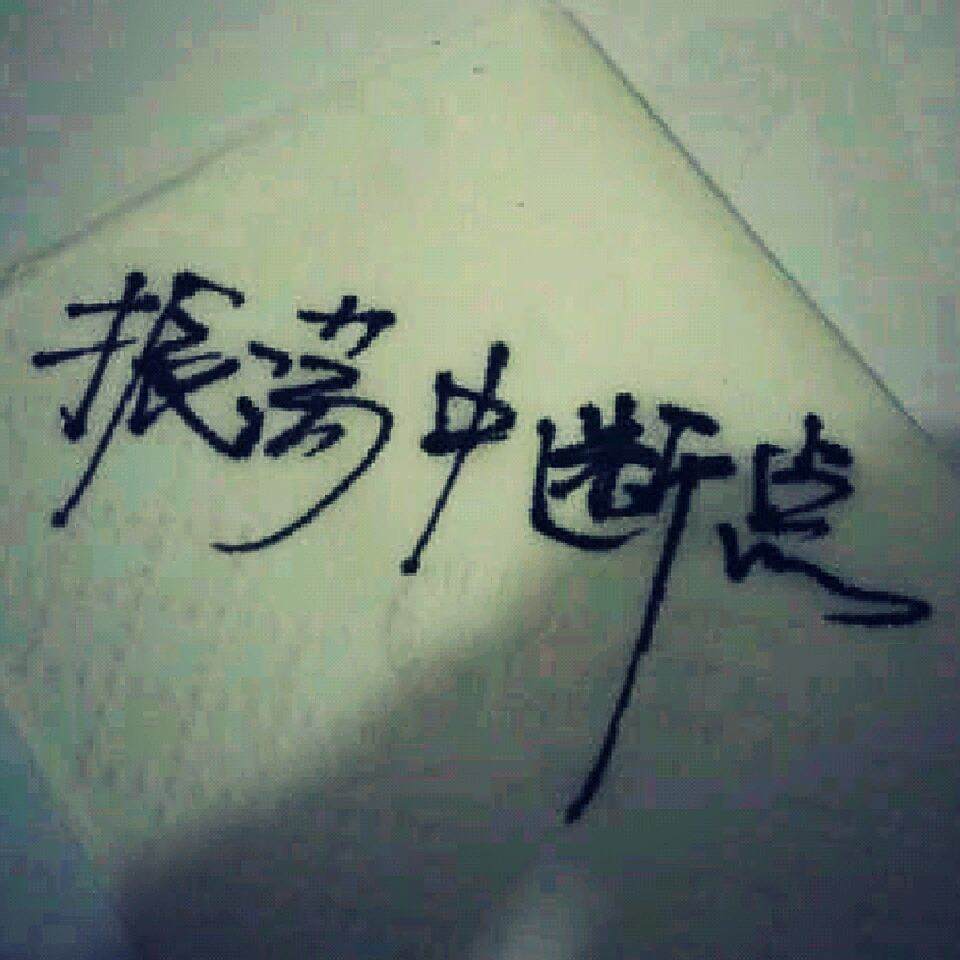 振荡中断点